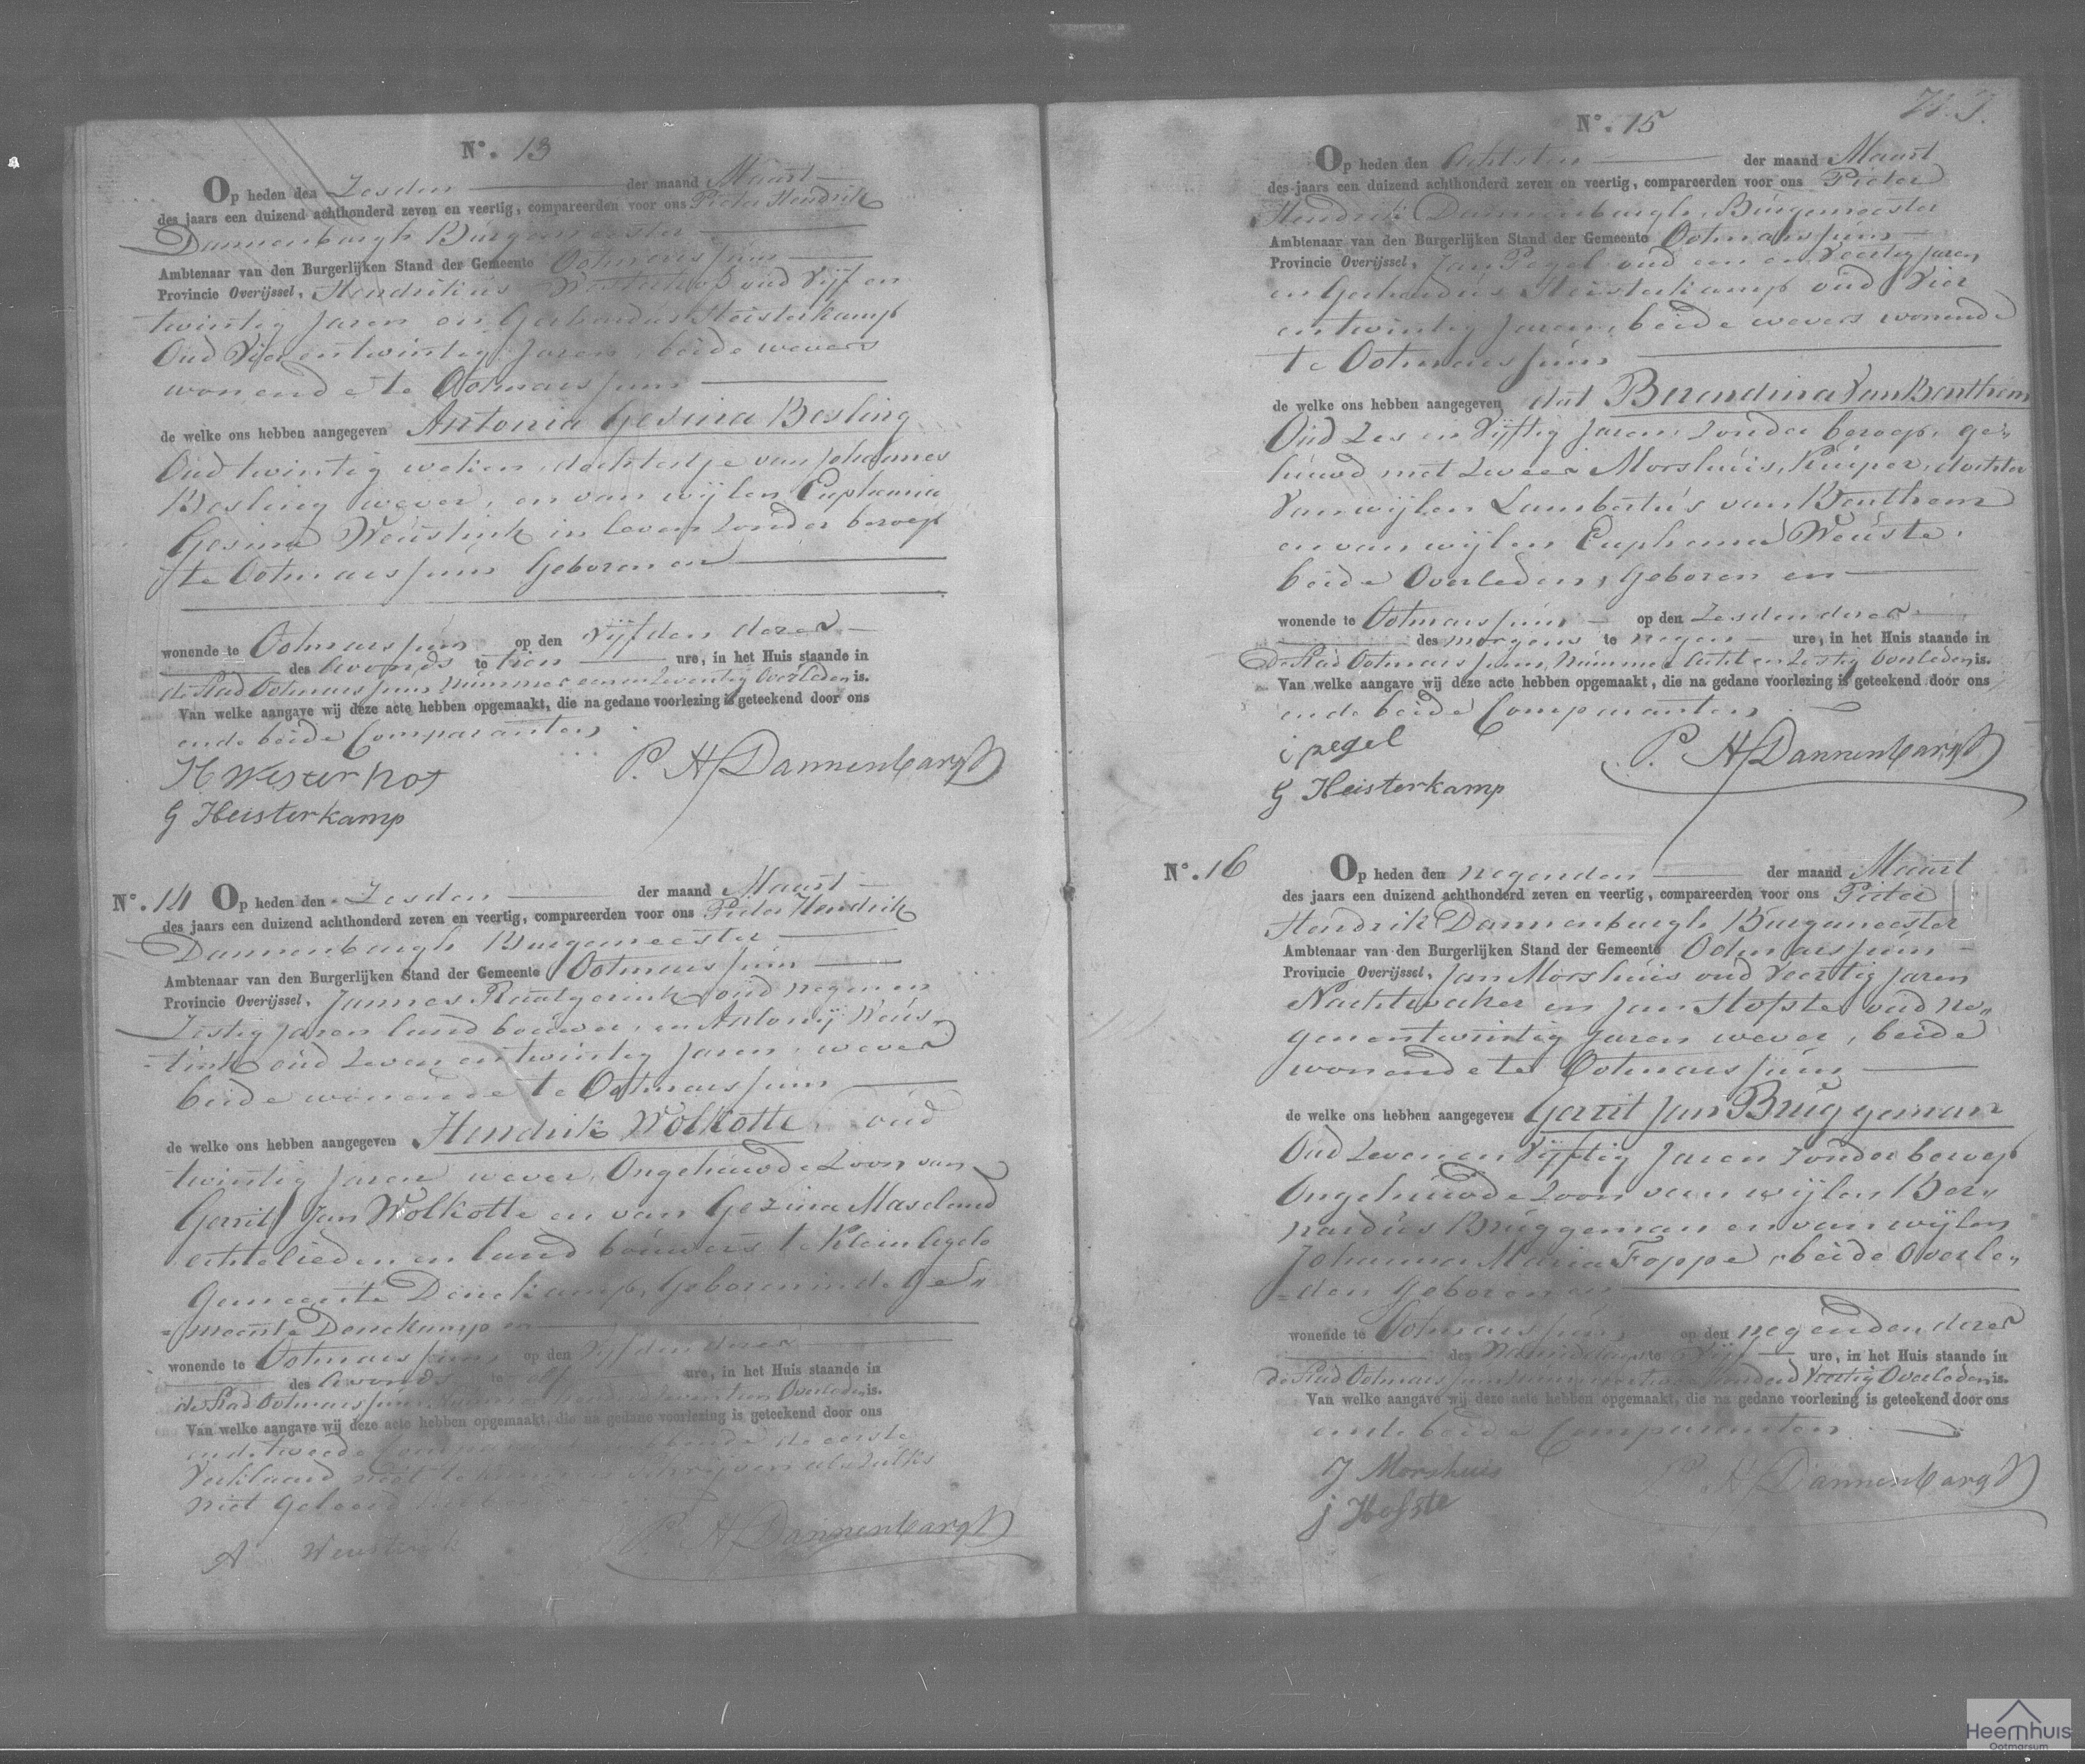 N°. 13
Op heden den Zesden der maand Maart
des jaars een duizend achthonderd zeven en veertig, compareerden voor ons Pieter Hendrik
Dannenbargh Burgemeester
Ambtenaar van den Burgerlijken Stand der Gemeente Ootmarssum
Provincie Overijssel, Hendrikus Westerhof oud Vijf en
twintig Jaren en Gerhardus Heisterkamp
Oud Vier entwintig Jaren, beide wevers
wonende te Ootmarssum
de welke ons hebben aangegeven Antonia Gesina Besling
Oud twintig weken dochtertje van Johannes
Besling wever, en van wijlen Euphemia
Gesina Weustink in leven zonder beroep
te Ootmarssum Geboren en
wonende te Ootmarssum op den Vijfden dezer
des Avonds te tien ure, in het Huis staande in
de Stad Ootmarssum Nummer een en Zeventig Overleden is.
Van welke aangave wij deze acte hebben opgemaakt, die na gedane voorlezing is geteekend door ons
en de beide Comparanten
H Westerhof
P. H Dannenbargh
G Heisterkamp
N°. 14 Op heden den Zesden der maand Maart
des jaars een duizend achthonderd zeven en veertig, compareerden voor ons Pieter Hendrik
Dannenbargh Burgemeester
Ambtenaar van den Burgerlijken Stand der Gemeente Ootmarssum
Provincie Overijssel, Jannes Raatgerink oud negen en
Zestig jaren landbouwer, en Antonij Weus-
-tink oud Zeven entwintig Jaren, wever
beide wonende te Ootmarssum
de welke ons hebben aangegeven Hendrik Wolkotte, oud
twintig jaren wever, Ongehuwde Zoon van
Gerrit Jan Wolkotte en van Gezina Maseland
echtelieden en land bouwers te Klein Agelo
Gemeente Denekamp, Geboren in de Ge„
-meente Denekamp en
wonende te Ootmarssum op den Vijfden dezer
des Avonds te elf ure, in het Huis staande in
de Stad Ootmarssum Overleden is.
Van welke aangave wij deze acte hebben opgemaakt, die na gedane voorlezing is geteekend door ons
en de tweede de eerste
Verklaard niet te kunnen schrijven als zulks
niet Geleerd
A Weustink
P. H Dannenbargh
N°. 15
Op heden den Achtsten der maand Maart
des jaars een duizend achthonderd zeven en veertig, compareerden voor ons Pieter
Hendrik Dannenbargh, Burgemeester
Ambtenaar van den Burgerlijken Stand der Gemeente Ootmarssum
Provincie Overijssel, Jan Pegel oud een en Veertig Jaren
en Gerhardus Heisterkamp oud Vier
entwintig Jaren, beide wevers wonende
te Ootmarssum
de welke ons hebben aangegeven dat Berendina Van Benthem
Oud Zes en Vijftig Jaren Zonder beroep, ge„
huwd met Zweer Morshuis, Kuiper, dochter
Van wijlen Lambertus van Benthem
en van wijlen Euphemia Weuste,
beide Overleden, Geboren en
wonende te Ootmarssum op den Zesden dezer
des morgens te negen ure, in het Huis staande in
de Stad Ootmarssum, Nummer Acht en Zestig Overleden is.
Van welke aangave wij deze acte hebben opgemaakt, die na gedane voorlezing is geteekend door ons
en de beide Comparanten
j pegel
P. H Dannenbargh
G Heisterkamp
N°. 16 Op heden den negenden der maand Maart
des jaars een duizend achthonderd zeven en veertig, compareerden voor ons Pieter
Hendrik Dannenbargh Burgemeester
Ambtenaar van den Burgerlijken Stand der Gemeente Ootmarssum
Provincie Overijssel, Jan Morshuis oud Veertig Jaren
Nachtwaker en Jan Hofste oud ne„
genentwintig Jaren wever, beide
wonende te Ootmarssum
de welke ons hebben aangegeven Gerrit Jan Bruggeman
Oud Zeven en Vijftig Jaren Zonder beroep
Ongehuwde Zoon van wijlen Ber„
nardus Bruggeman en van wijlen
Johanna Maria Foppe, beide Overle„
-den Geboren en
wonende te Ootmarssum op den negenden dezer
des Namiddags te Vijf ure, in het Huis staande in
de Stad Ootmarssum Veertig Overleden is.
Van welke aangave wij deze acte hebben opgemaakt, die na gedane voorlezing is geteekend door ons
en de beide Comparanten
J Morshuis
P. H Dannenbargh
j Hofste
Heemhuis
Ootmarsum